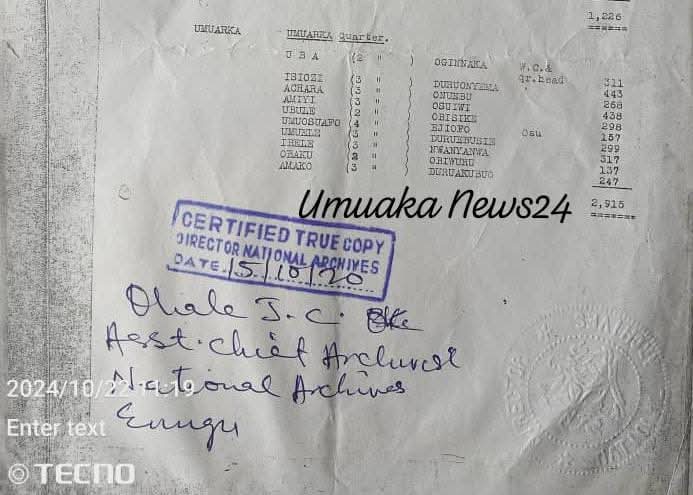 1,226
======
UMUARKA UMUARKA Quarter.
U B A (2 " ) OGINNAKA W.C.&
qr.head 311
ISIOZI (3 " ) DURUONYEMA 443
ACHARA (3 " ) ONUEBU 268
AMIYI (3 " ) OSUIWI 438
UBULE (2 " ) OBISIKE 298
UMUOSUAFO (4 " ) EJIOFO Osu 157
UMUELE (3 " ) DURUEBUSIE 299
IBELE (3 " ) NWANYANWA 317
OBAKU 2 " ) ORIWURU 137
AMAKO (3 " ) DURUAKUBUO 247
2,915
=======
Umuaka News24
CERTIFIED TRUE COPY
DIRECTOR NATIONAL ARCHIVES
DATE 15/10/20
J. C.
Asst. Chief Archivist
National Archives
Enugu
2024/10/22 11:19
Enter text
TECNO